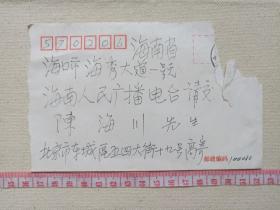 570206 海南省
海口市海秀大道一号
海南人民广播电台请交
陳海川先生
北京市东城区五四大街十九号高寄
邮政编码